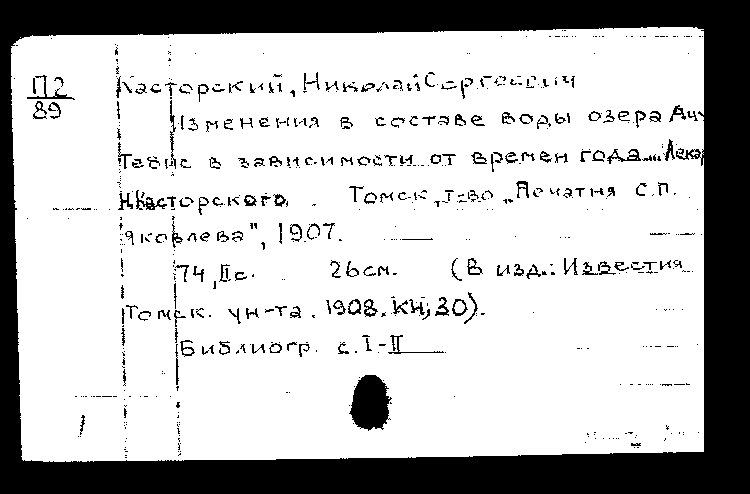 П2
89
Касторский, Николай Сергеевич
Изменения в составе воды озера
Тебис в зависимости от времен года...
Н.Касторского. Томск, т-во „Печатня С.П.
Яковлева", 1907.
74, II с. 26см. (В изд.: Известия
Томск. ун-та. 1908. кн. 30).
Библиогр. с. I-II